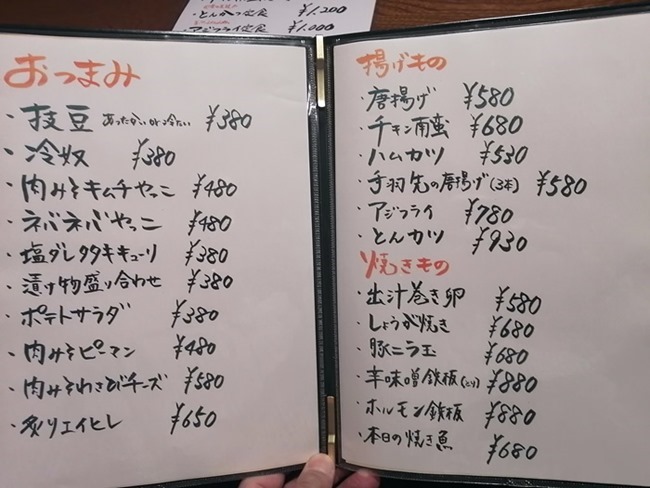 ・とんかつ定食 ¥1,200
・アジフライ定食 ¥1,000
おつまみ
・枝豆 あったかい or 冷たい ¥380
・冷奴 ¥380
・肉みそキムチやっこ ¥480
・ネバネバやっこ ¥480
・塩ダレタタキキューリ ¥380
・漬け物盛り合わせ ¥380
・ポテトサラダ ¥380
・肉みそピーマン ¥480
・肉みそわさびチーズ ¥580
・炙りエイヒレ ¥650
揚げもの
・唐揚げ ¥580
・チキン南蛮 ¥680
・ハムカツ ¥530
・手羽先の唐揚げ(3本) ¥580
・アジフライ ¥780
・とんカツ ¥930
焼きもの
・出汁巻き卵 ¥580
・しょうが焼き ¥680
・豚ニラ玉 ¥680
・辛味噌鉄板(とり) ¥880
・ホルモン鉄板 ¥880
・本日の焼き魚 ¥680